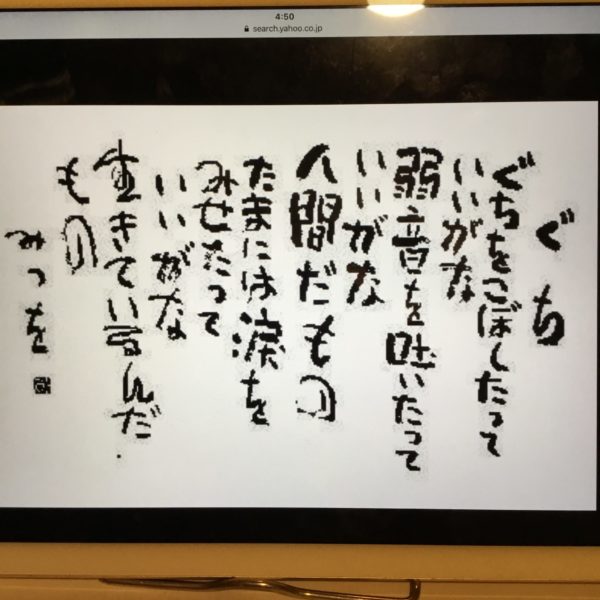 4:50
search.yahoo.co.jp
ぐち
ぐちをこぼしたって
いいがな
弱音を吐いたって
いいがな
人間だもの
たまには涙を
みせたって
いいがな
生きているんだ
もの
みつを